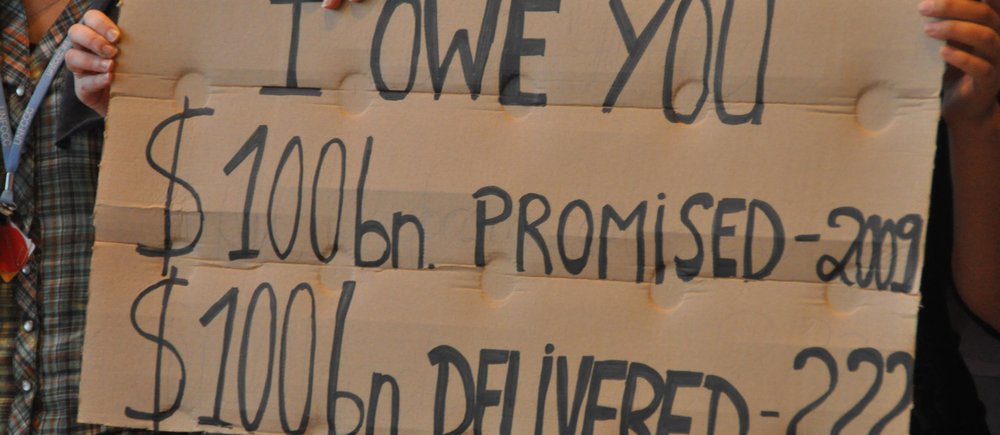 I OWE YOU
$100bn. PROMiSED-2009
$100bn DELiVERED-???